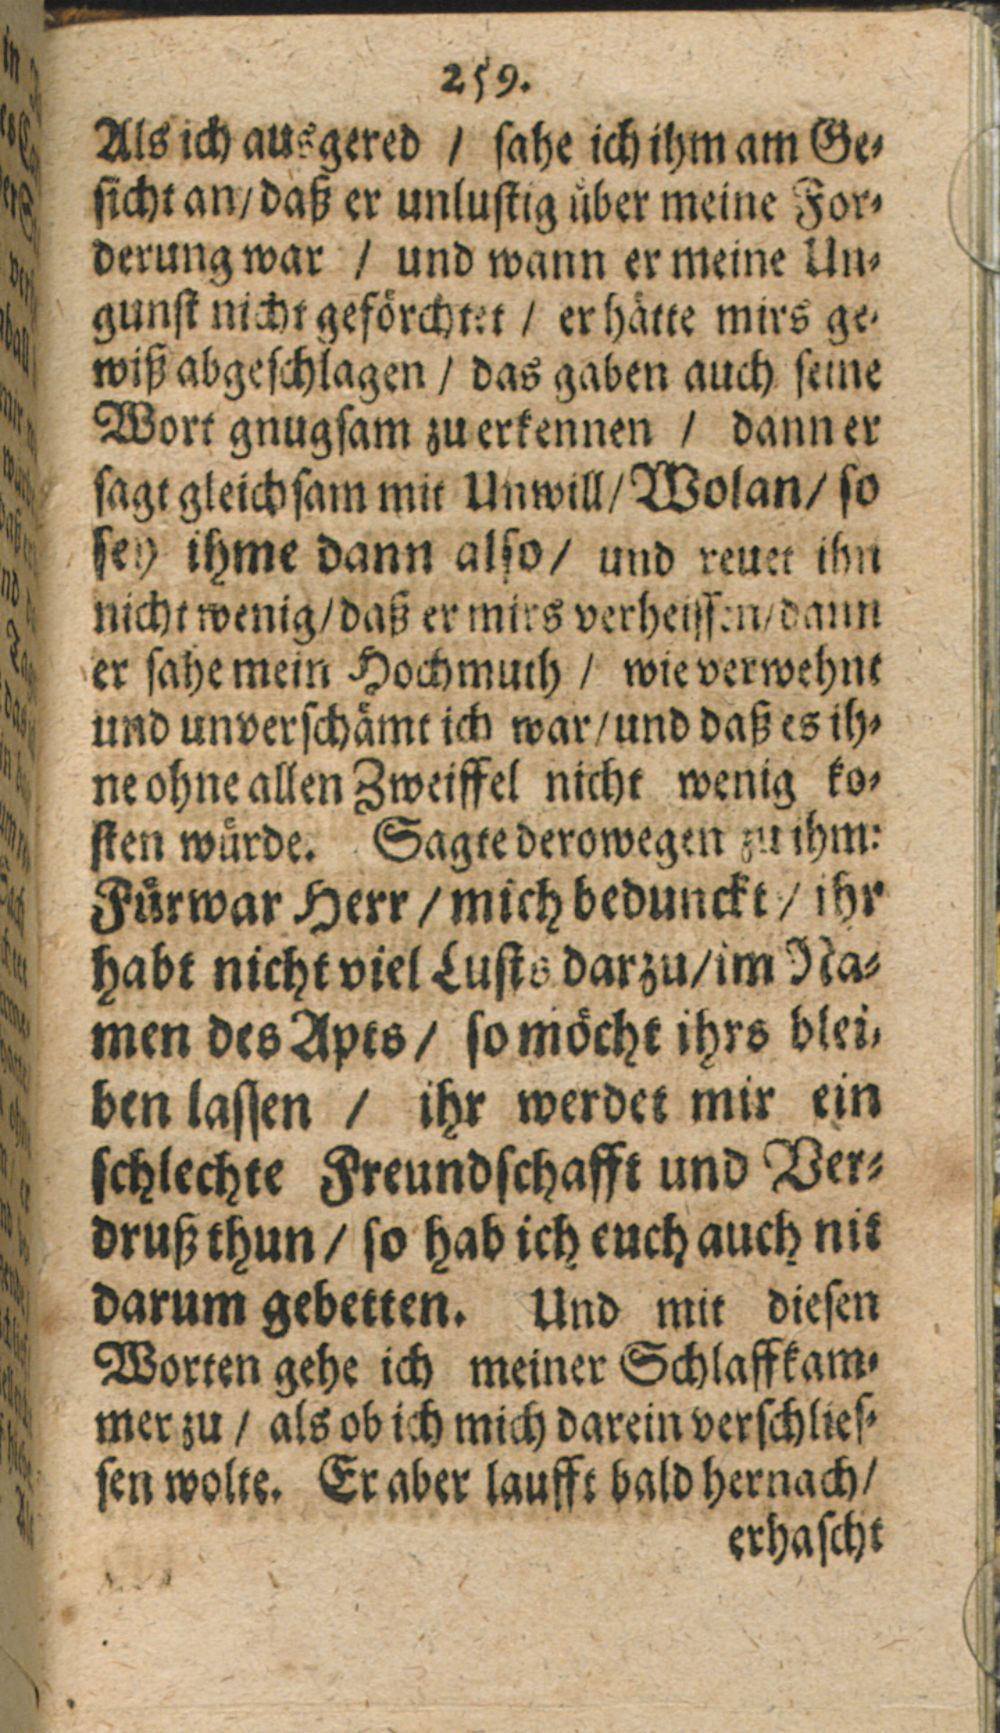 259.
Als ich ausgered / sahe ich ihm am Ge-
sicht an/ daß er unlustig über meine For-
derung war / und wann er meine Un-
gunst nicht geförchtet / er hätte mirs ge-
wiß abgeschlagen / das gaben auch seine
Wort gnugsam zu erkennen / dann er
sagt gleichsam mit Unwill/ Wolan/ so
sey ihme dann also/ und reuet ihn
nicht wenig/ daß er mirs verheissen/ dann
er sahe mein Hochmuth / wie verwehnt
und unverschämt ich war/ und daß es ih-
ne ohne allen Zweiffel nicht wenig ko-
sten würde. Sagte derowegen zu ihm:
Fürwar Herr / mich bedunckt / ihr
habt nicht viel Lusts darzu/ im Na-
men des Apts / so möcht ihrs blei-
ben lassen / ihr werdet mir ein
schlechte Freundschafft und Ver-
druß thun / so hab ich euch auch nit
darum gebetten. Und mit diesen
Worten gehe ich meiner Schlaffkam-
mer zu / als ob ich mich darein verschlies-
sen wolte. Er aber laufft bald hernach/
erhascht